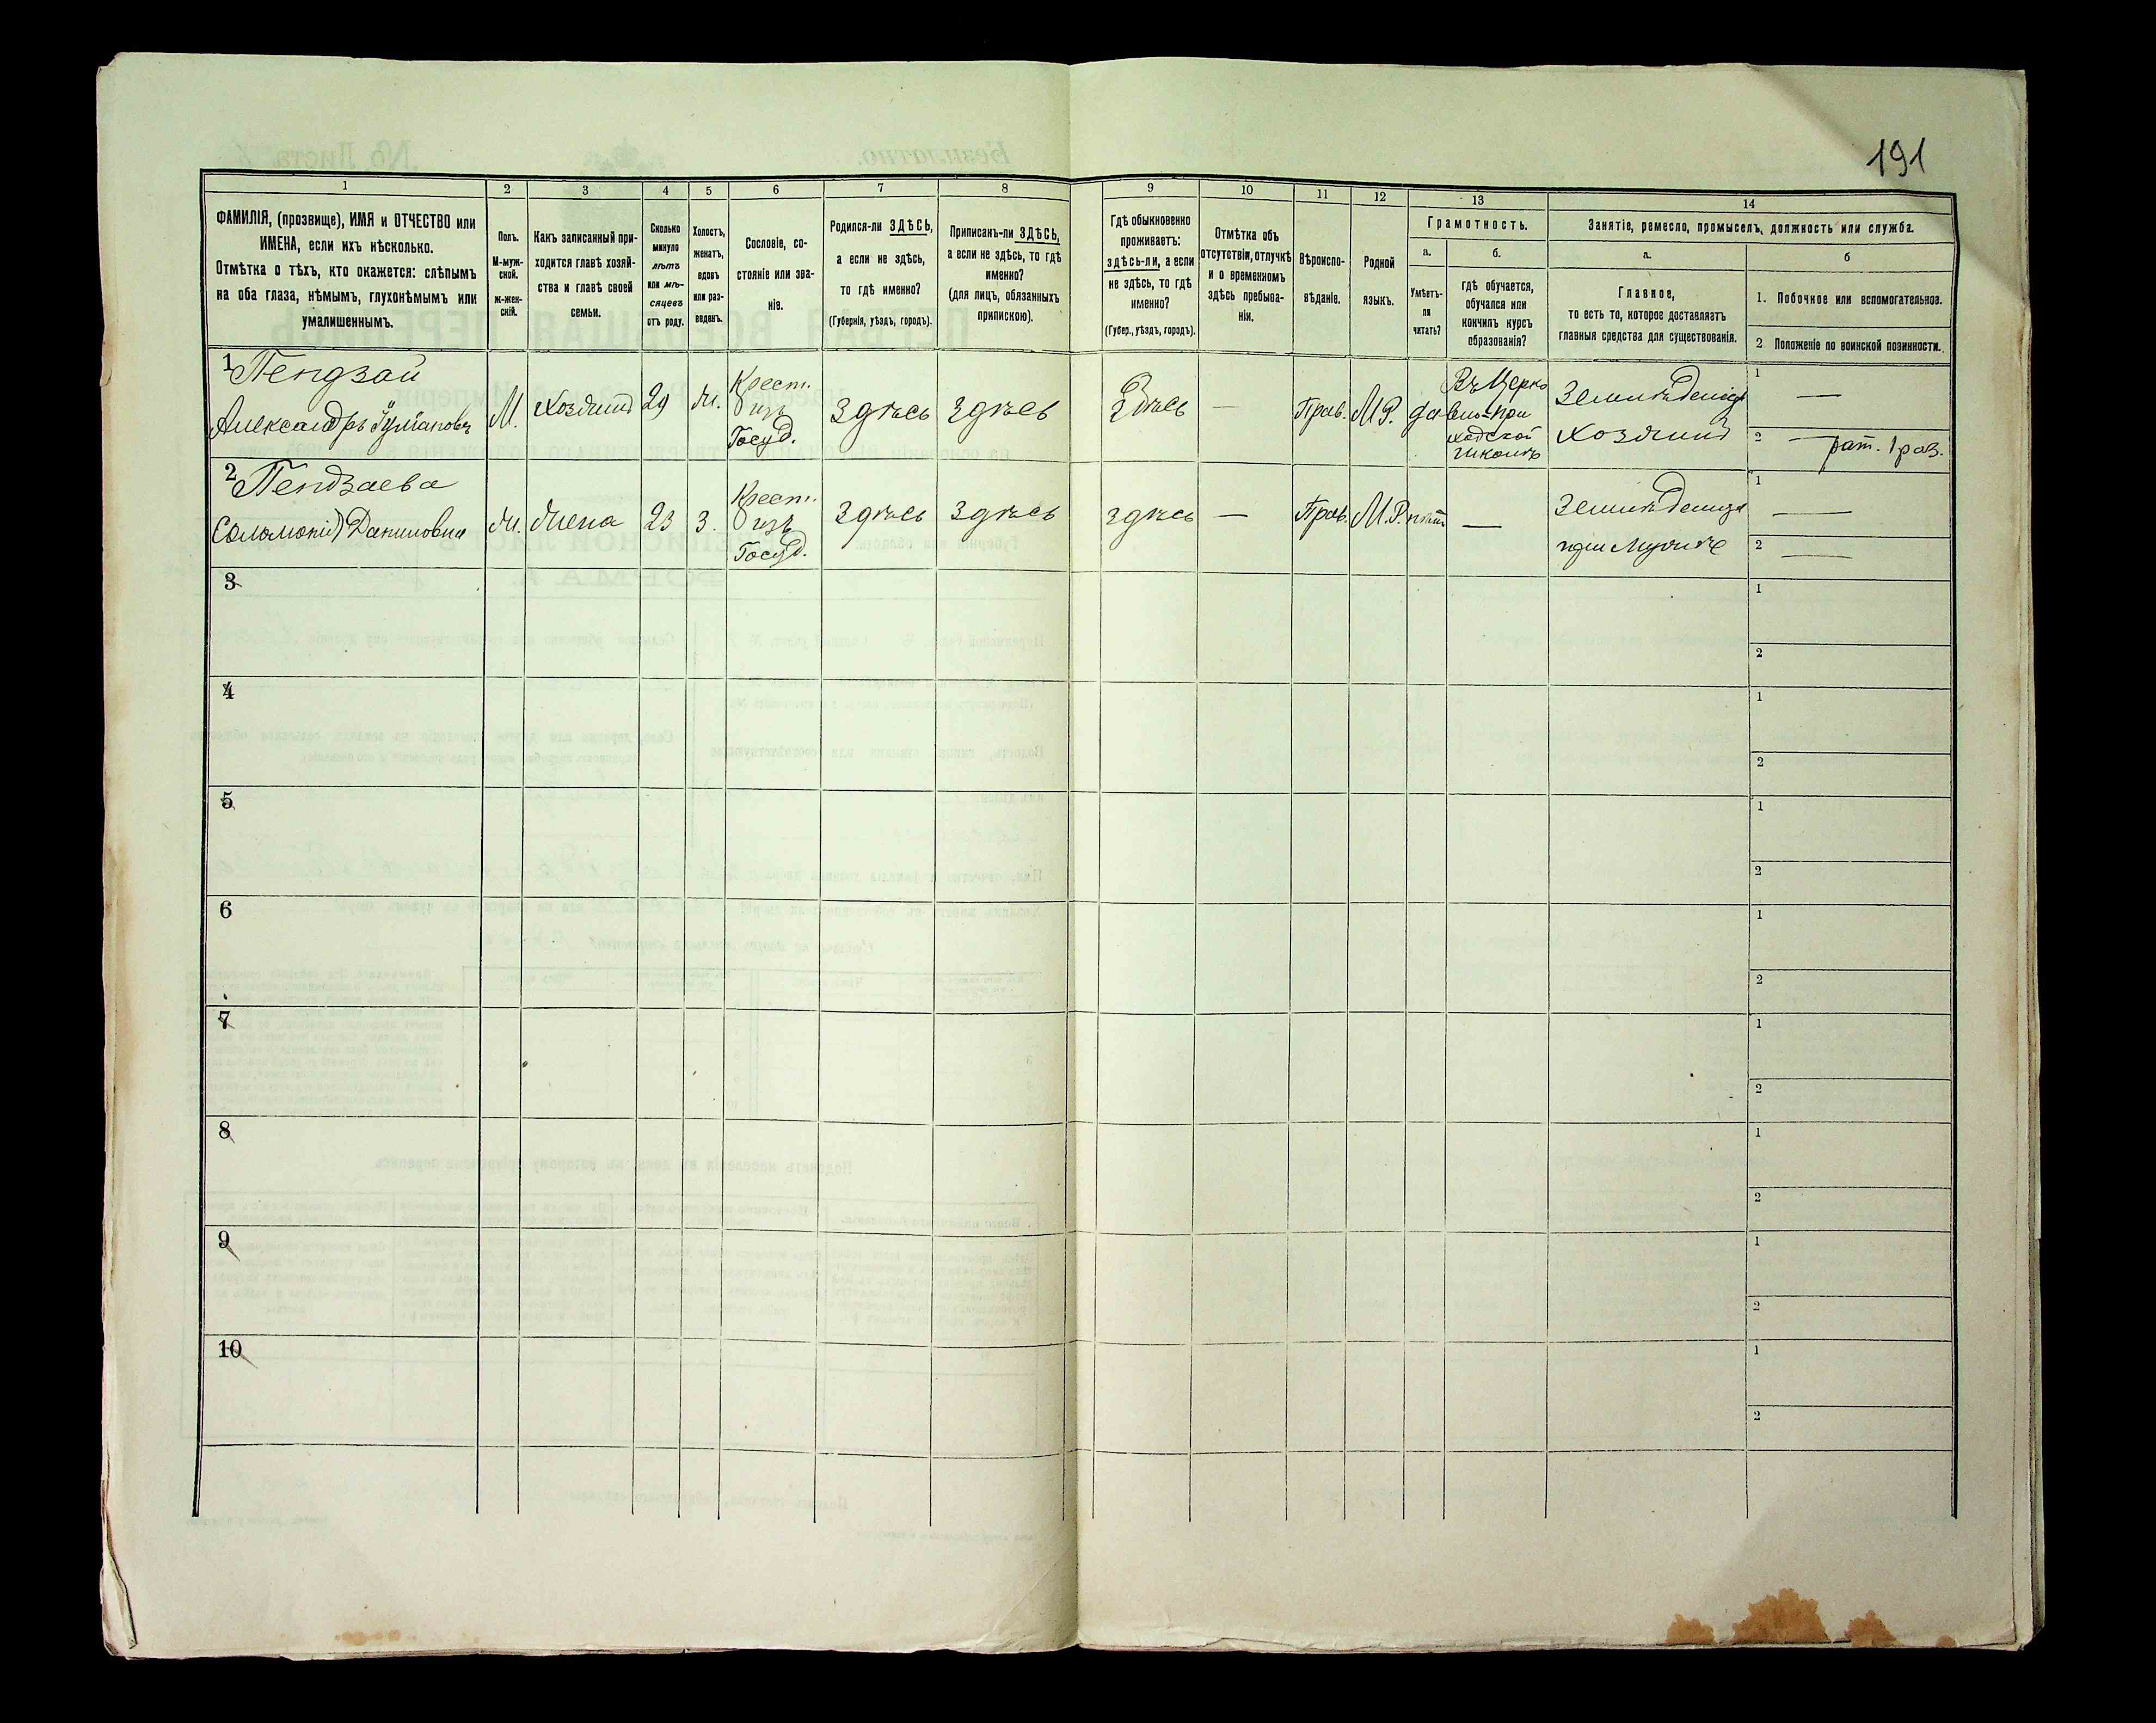 191
1 2 3 4 5 6 7 8 9 10 11 12 13 14
ФАМИЛІЯ, (прозвище), ИМЯ и ОТЧЕСТВО или
ИМЕНА, если ихъ нѣсколько.
Отмѣтка о тѣхъ, кто окажется: слѣпымъ
на оба глаза, нѣмымъ, глухонѣмымъ или
умалишеннымъ.
Полъ.
М-муж-
ской.
ж-жен-
скій.
Какъ записанный при-
ходится главѣ хозяй-
ства и главѣ своей
семьи.
Сколько
минуло
лѣтъ
или мѣ-
сяцевъ
отъ роду.
Холостъ,
женатъ,
вдовъ
или раз-
веденъ.
Сословіе, со-
стояніе или зва-
ніе.
Родился-ли ЗДѢСЬ,
а если не здѣсь,
то гдѣ именно?
(Губернія, уѣздъ, городъ).
Приписанъ-ли ЗДѢСЬ,
а если не здѣсь, то гдѣ
именно?
(для лицъ, обязанныхъ
припискою).
Гдѣ обыкновенно
проживаетъ:
здѣсь-ли, а если
не здѣсь, то гдѣ
именно?
(Губер., уѣздъ, городъ).
Отмѣтка объ
отсутствіи, отлучкѣ
и о временномъ
здѣсь пребыва-
ніи.
Вѣроиспо-
вѣданіе.
Родной
языкъ.
Грамотность.
а.
Умѣетъ-
ли
читать?
б.
гдѣ обучается,
обучался или
кончилъ курсъ
образованія?
Занятіе, ремесло, промыселъ, должность или служба.
а.
Главное,
то есть то, которое доставляетъ
главныя средства для существованія.
б
1. Побочное или вспомогательное.
2 Положеніе по воинской повинности.
1 Пендзай
Александръ
М.
Хозяинъ
29
ж.
Крест.
изъ
Госуд.
Здѣсь
Здѣсь
Здѣсь
—
Прав.
М.Р.
да
Въ Церко
вно-при
ходской
школѣ
Земледѣлецъ
хозяинъ
1 —
2 — рат. 1 раз.
2 Пендзаева
Соломонія Даниловна
ж.
жена
23
з.
Крест.
изъ
Госуд.
Здѣсь
Здѣсь
здѣсь
—
Прав.
М.Р.
нѣтъ
—
при мужѣ
1 —
2 —
3
1
2
4
1
2
5
1
2
6
1
2
7
1
2
8
1
2
9
1
2
10
1
2